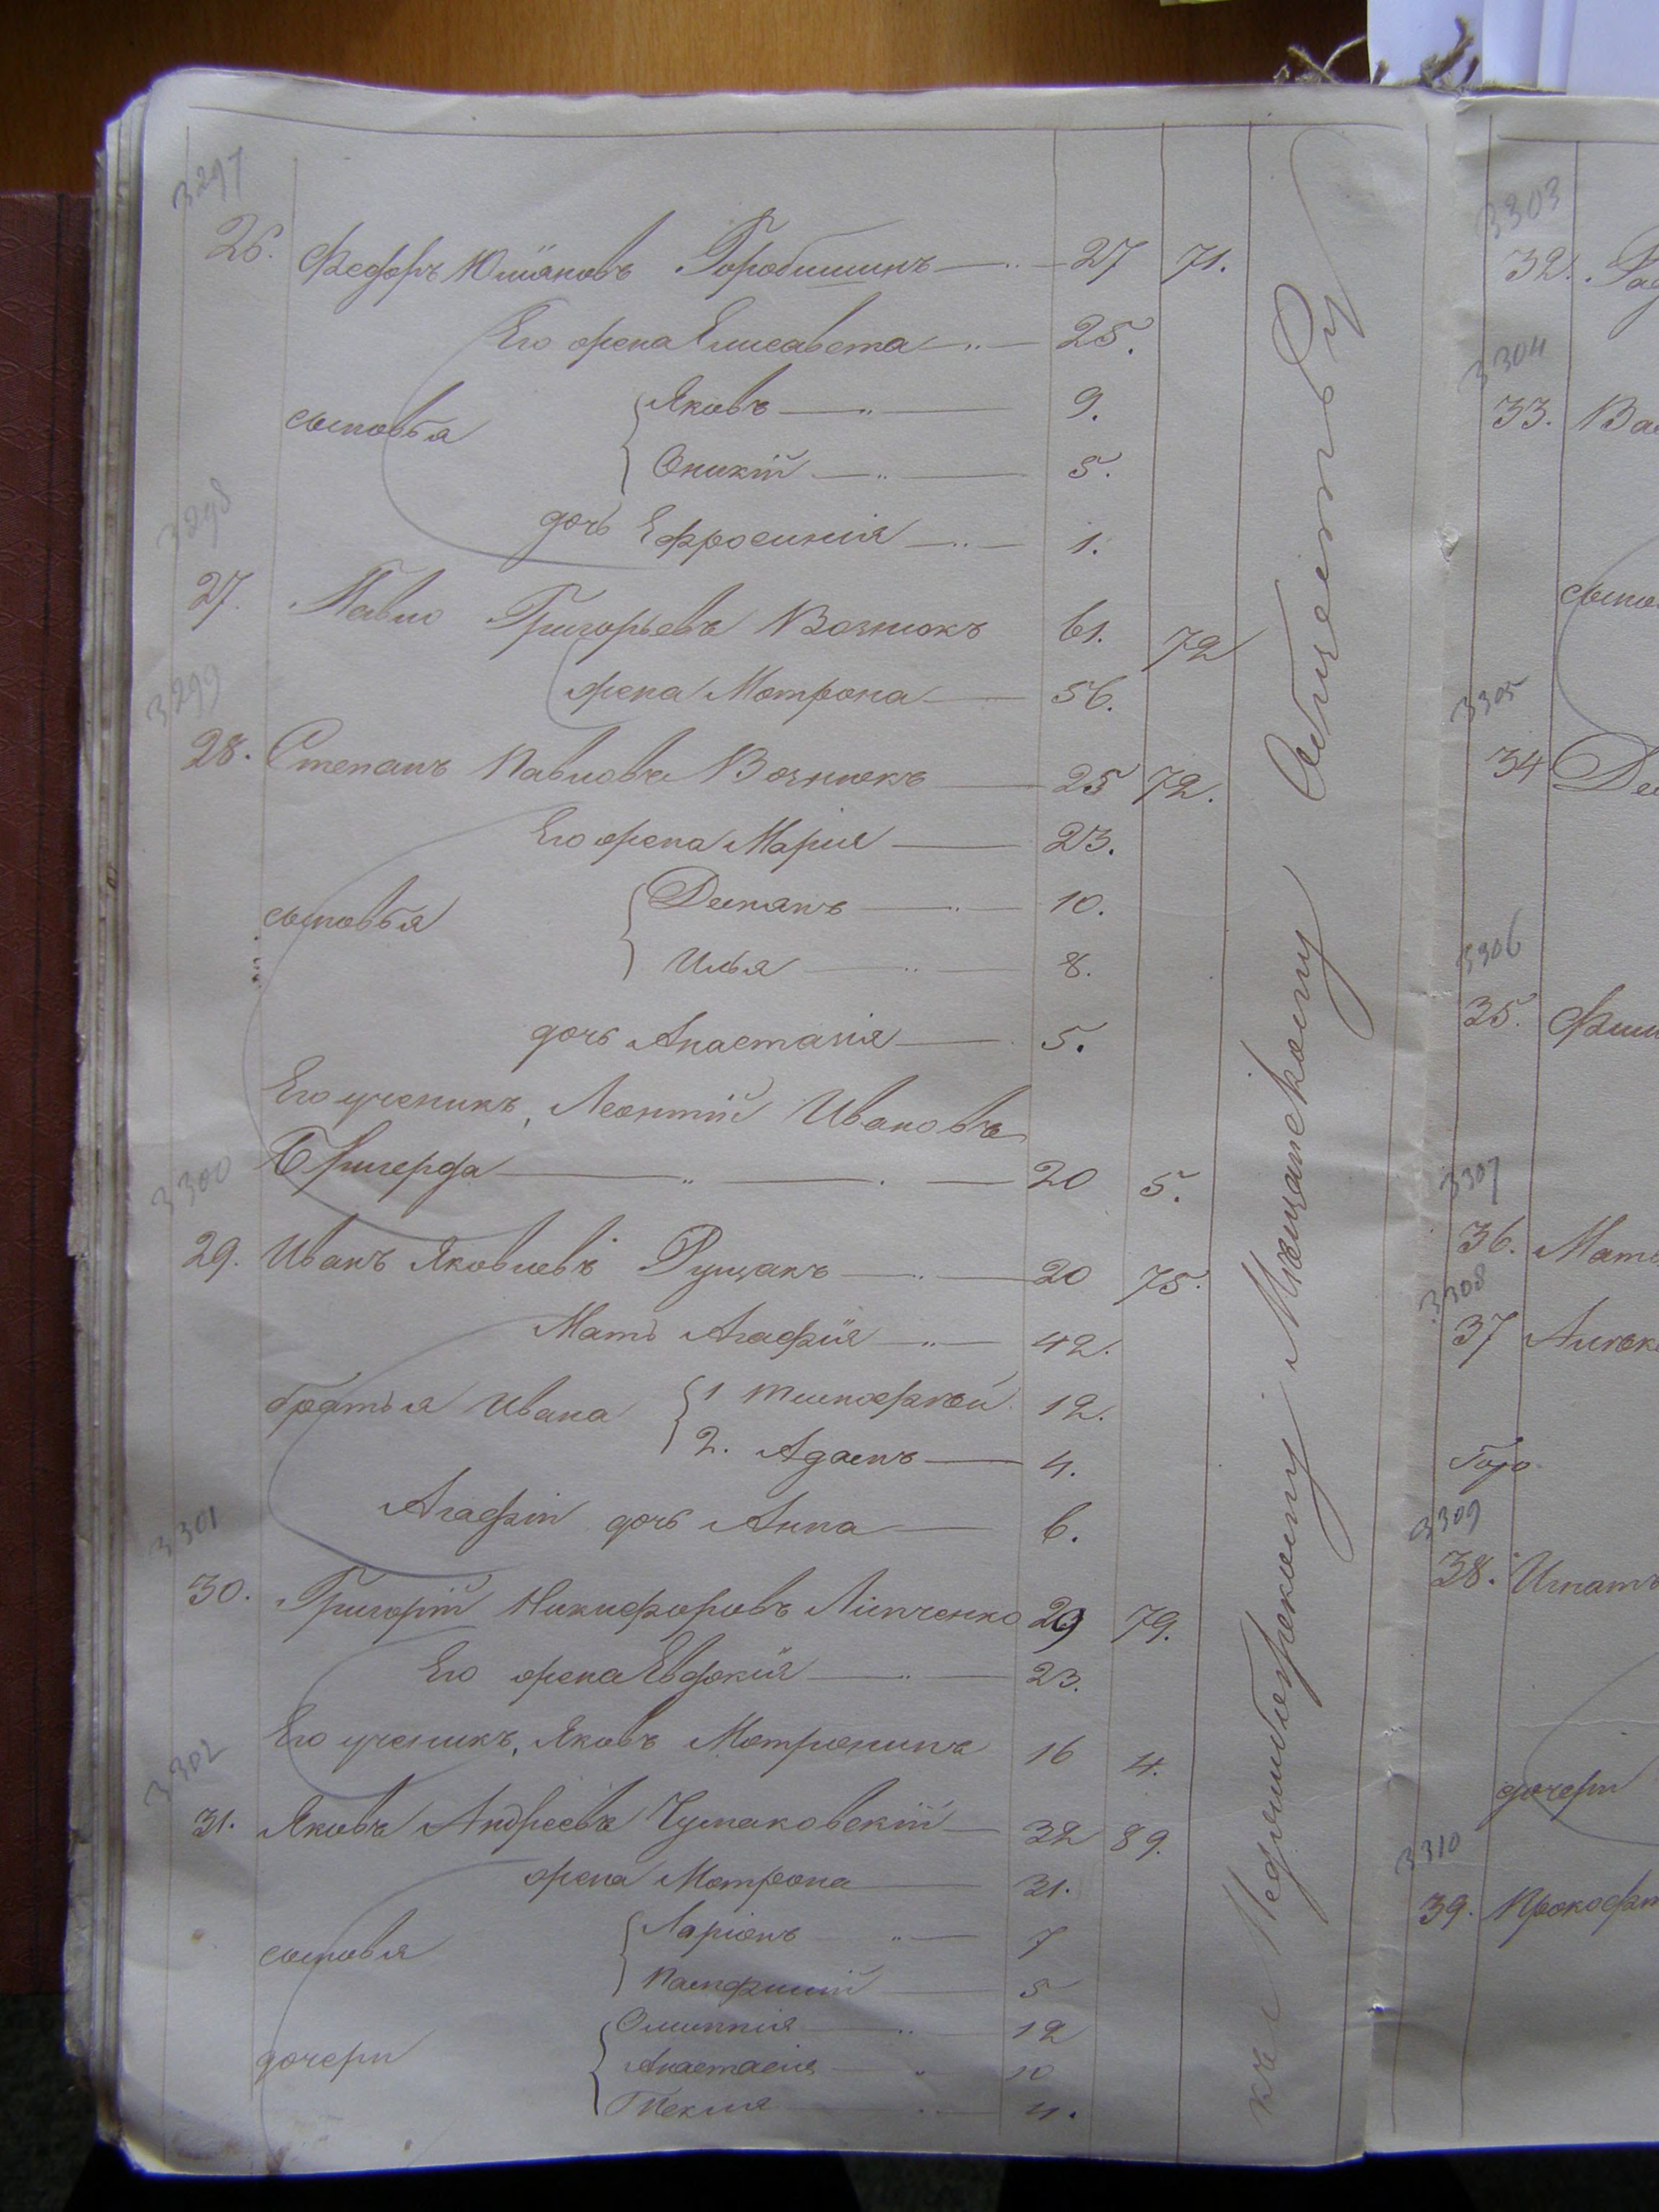 3297
26. Федоръ Юліановъ Горобишинъ 27 71.
Его жена Елисавета 25.
сыновья Яковъ 9.
Оникій 5.
дочь Ефросинія 1.
3298
27. Павло Григорьевъ Вознюкъ 61. 72
жена Мотрона 56.
3299
28. Степанъ Павловъ Вознюкъ 25 72.
Его жена Марія 23.
сыновья Демянъ 10.
Илья 8.
дочь Анастасія 5.
Его ученикъ, Леонтій Ивановъ
20 5.
3300
29. Иванъ Яковлевъ Рущакъ 20 75.
Мать Агафія 42.
братья Ивана 1 Тимофѣй 12.
2. Адамъ 4.
Агафіи дочь Анна 6.
3301
30. Григорій Никифоровъ Липченко 29 79.
Его жена Евдокія 23.
Его ученикъ, Яковъ Мотрунинъ 16 4.
3302
31. Яковъ Андреевъ Чумаковскій 32 89.
жена Мотрона 31.
сыновья Ларіонъ 7
Памфилій 5
дочери Олимпія 12
Анастасія 10
Текля 4.
къ Меджибожскому Мѣщанскому Обществу
3303
32.
3304
33. Ва
сыно
3305
34 Де
3306
35. Фили
3307
36. Матв
3308
37 Алекс
3309
38. Игнатъ
дочери
3310
39. Прокофі